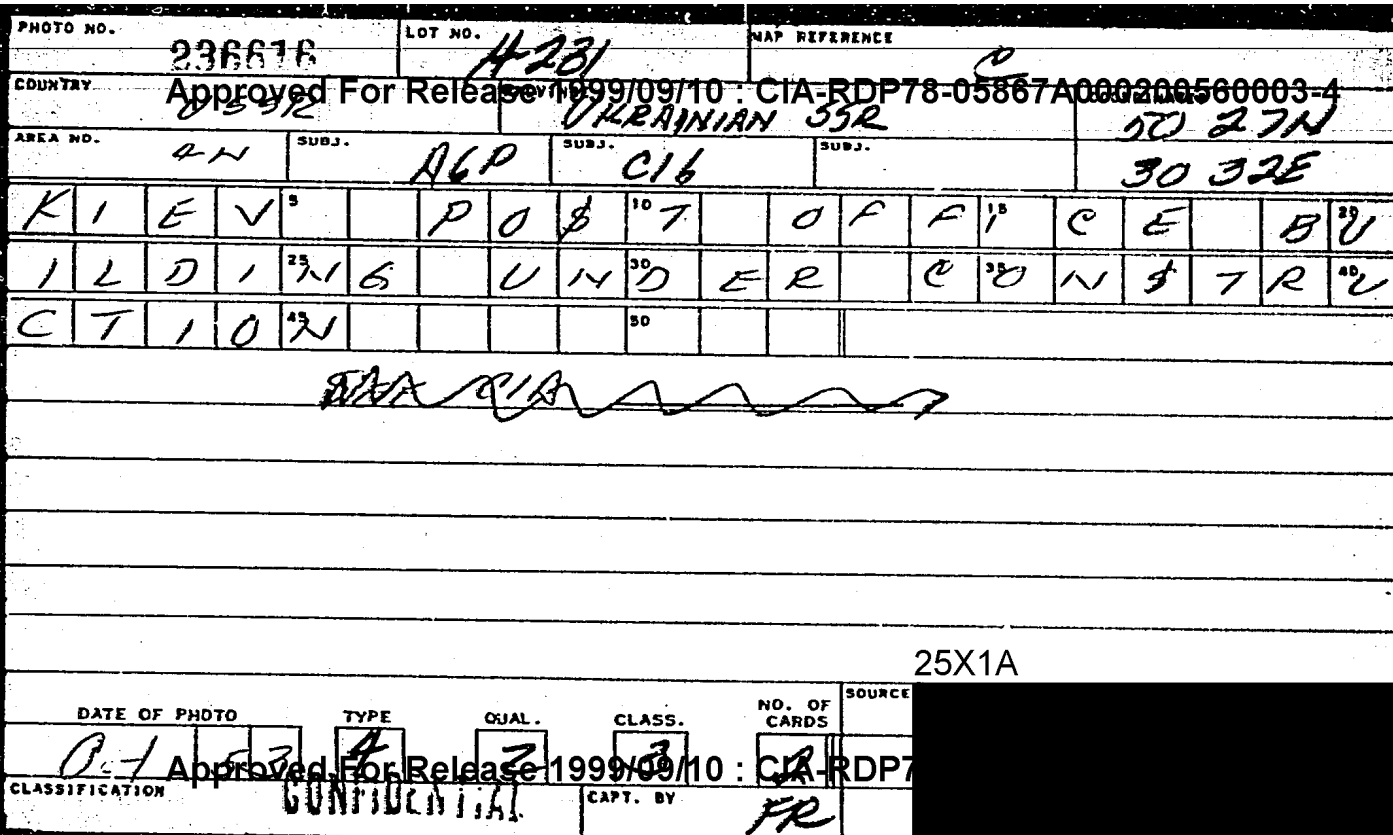 PHOTO NO. 236616 LOT NO. H-231 MAP REFERENCE C
Approved For Release 1999/09/10 : CIA-RDP78-05867A000200560003-4
COUNTRY USSR UKRAINIAN SSR 50 27N
AREA NO. 4N SUBJ. A6P SUBJ. C16 SUBJ. 30 32E
KIEV PO$T OFFICE BU
ILDING UNDER CON$TRU
CTION
25X1A
DATE OF PHOTO TYPE QUAL. CLASS. NO. OF CARDS SOURCE
53 4 2 3
Approved For Release 1999/09/10 : CIA-RDP7
CLASSIFICATION CONFIDENTIAL CAPT. BY FR